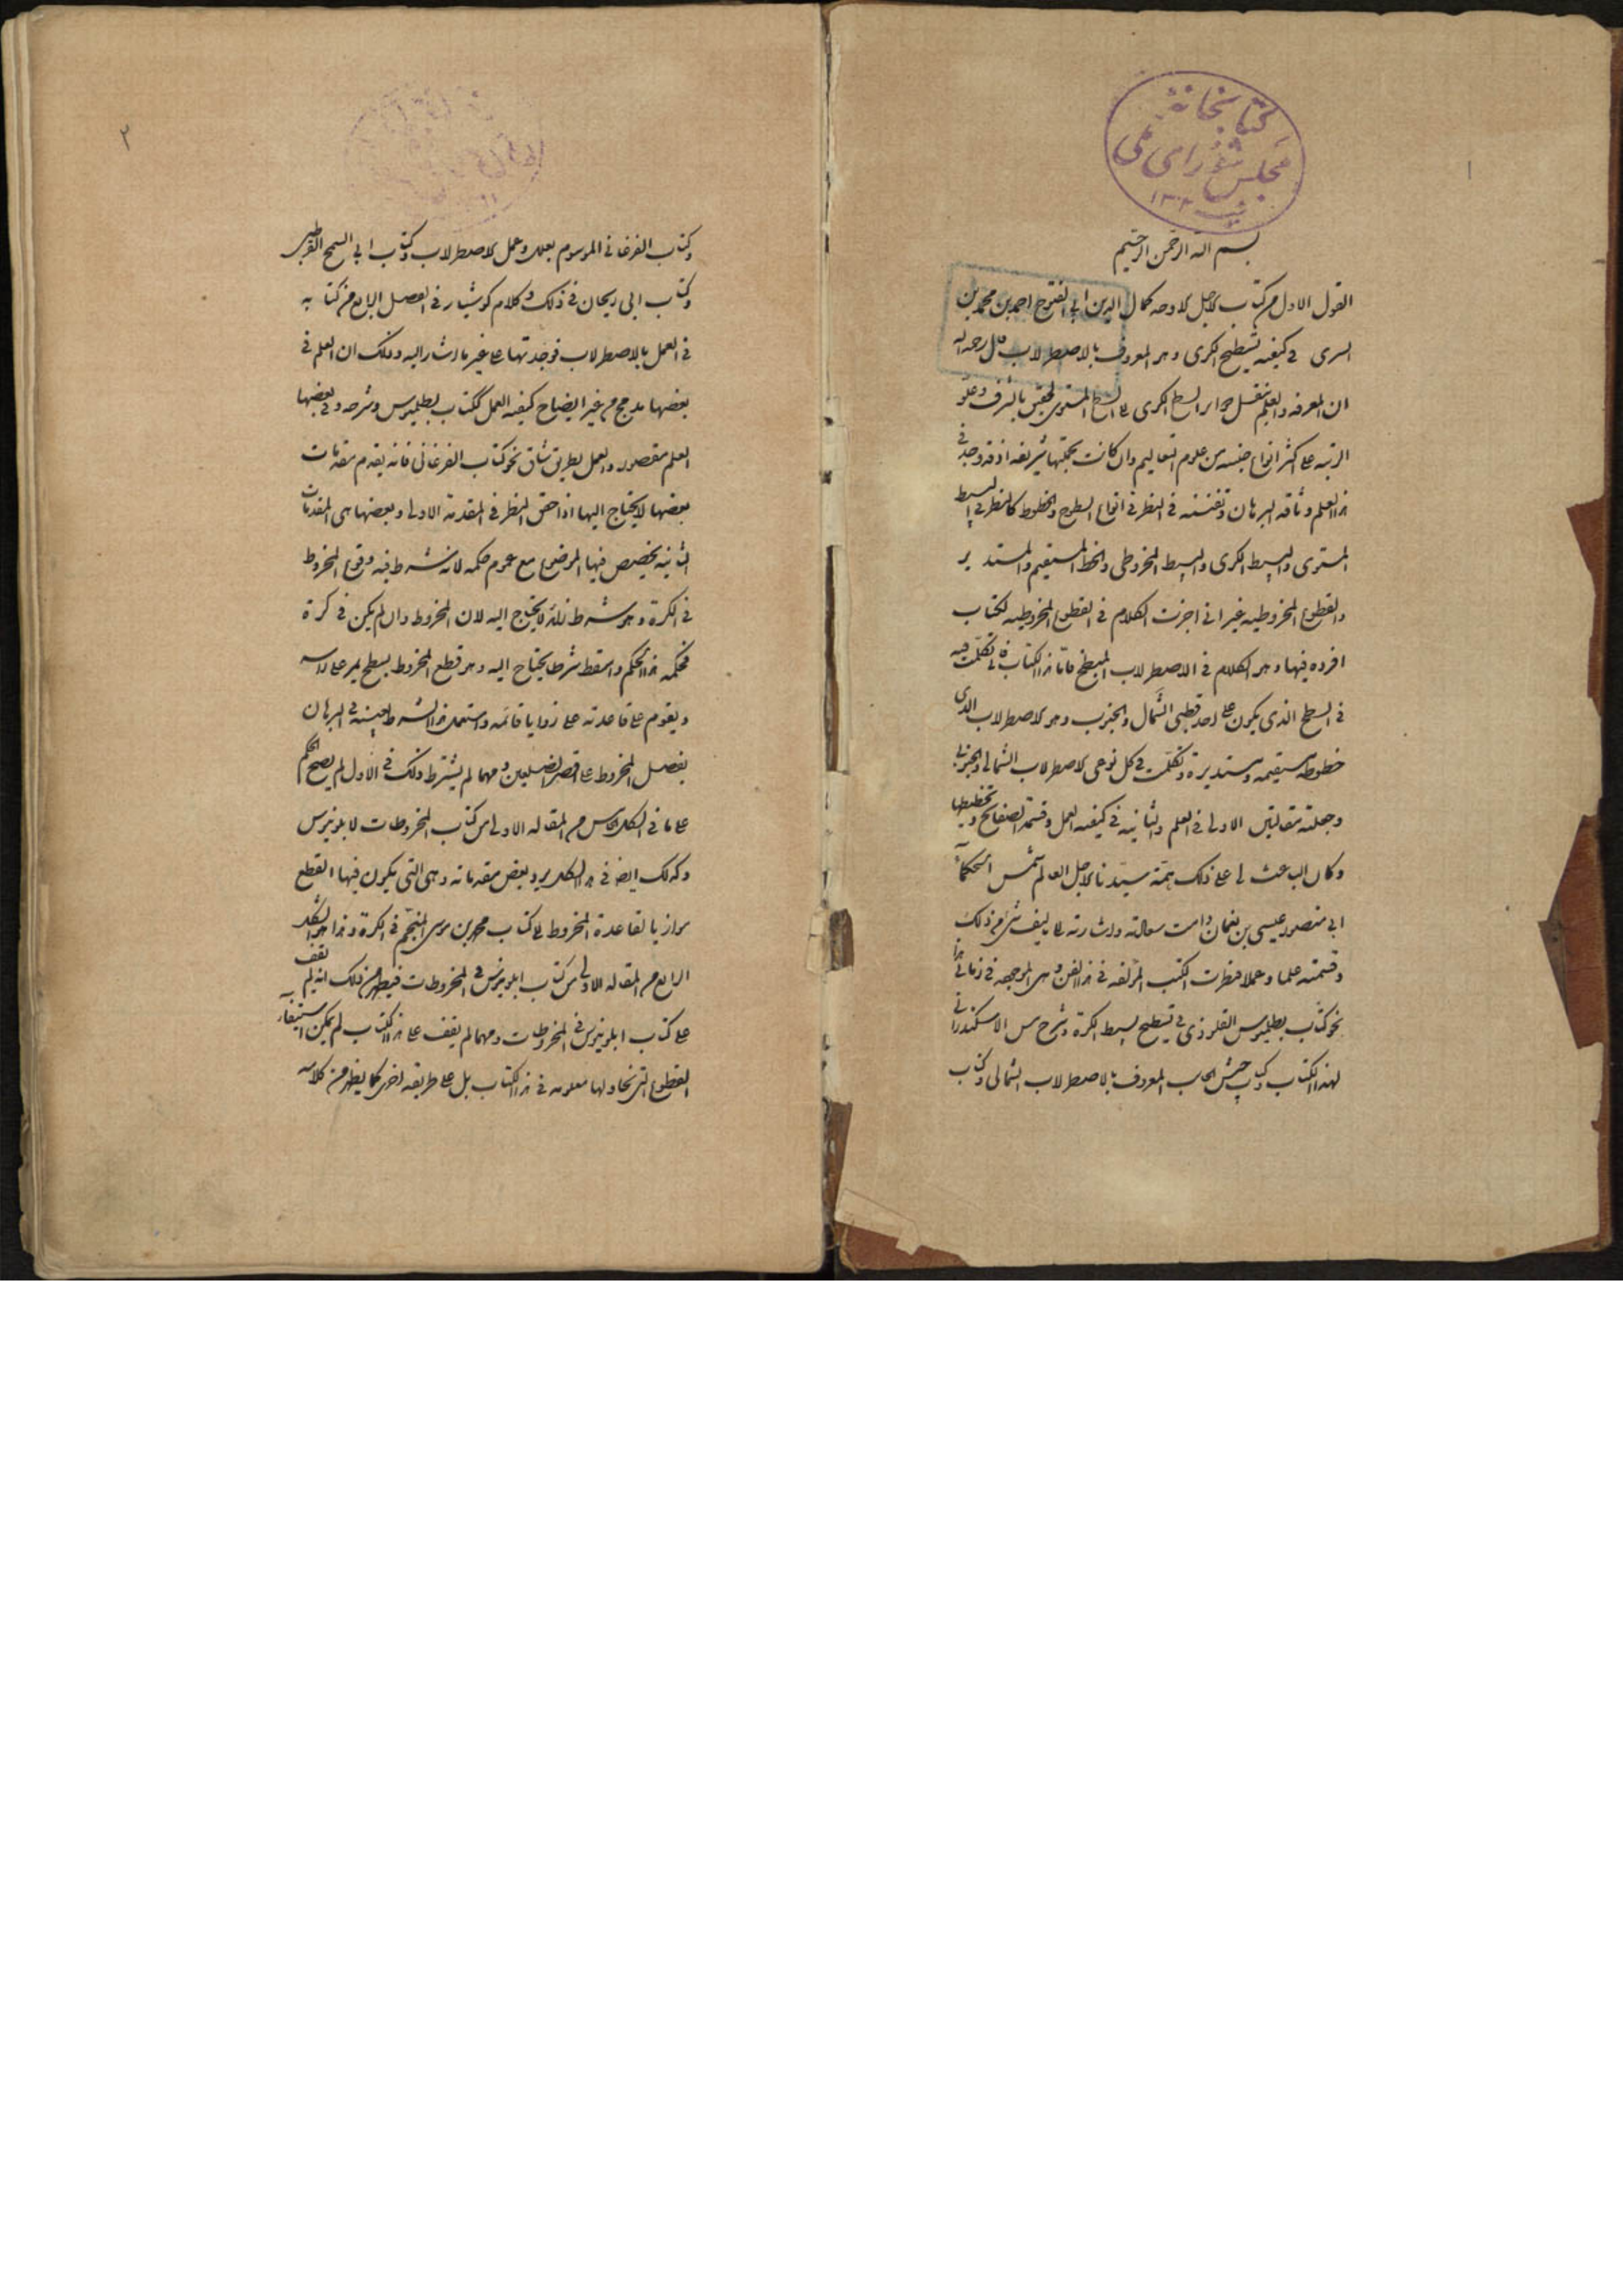 ١
كتابخانهٔ
مجلس شورای ملی
١٣٠٢
بسم الله الرحمن الرحيم
القول الاول من كتاب الاجل الاوحد كمال الدين ابي الفتوح احمد بن محمد بن
السرى فى كيفيه تسطيح الكرى وهو المعروف بالاصطرلاب قال رحمه الله
ان المعرفه والعلم بنقل السطح الكرى الى السطح المستوى بالشرف وعلو
الرتبه على اكثر انواع جنسه من علوم التعاليم وان كانت بجملتها شريفه اذ قد وجد فى
هذا العلم وثاقه البرهان وتفننه فى النظر فى انواع السطوح والخطوط كالنظر فى البسيط
المستوى والبسيط الكرى والبسيط المخروطى والخط المستقيم والمستدير
والقطوع المخروطيه غير انى اخرت الكلام فى القطوع المخروطيه لكتاب
افرده فيها وهو الكلام فى الاصطرلاب المبطخ فاما هذا الكتاب فانى تكلمت فيه
فى السطح الذى يكون على احد قطبى الشمال والجنوب وهو الاصطرلاب الذى
خطوطه مستقيمه ومستديرة وتكلمت فى كل نوعى الاصطرلاب الشمالى والجنوبى
وجعلته مقالتين الاولى فى العلم والثانيه فى كيفيه العمل وقسمة الصفائح وتخطيطها
وكان الباعث لى على ذلك همة سيدنا الاجل العالم شمس الحكماء
ابى منصور عيسى بن نعمان دامت سعادته واشارته الى تاليف شئ من ذلك
وقسمته علما وعملا فنظرت الكتب المؤلفه فى هذا الفن وهى الموجوده فى زماننا هذا
نحو كتاب بطلميوس القلوذى فى تسطيح بسيط الكرة وشرح الاسكندرانى
لهذا الكتاب وكتاب حبش الحاسب المعروف بالاصطرلاب الشمالى وكتاب
٢
وكتاب الفرغانى الموسوم بعلل وعمل الاصطرلاب وكتاب ابى السمح القرطبى
وكتاب ابى ريحان فى ذلك وكلام كوشيار فى الفصل الرابع من كتابه
فى العمل بالاصطرلاب فوجدتها على غير ما اشار اليه وذلك ان العلم فى
بعضها مدمج من غير ايضاح كيفيه العمل ككتاب بطلميوس وشرحه وفى بعضها
العلم مقصور والعمل بطريق شاق نحو كتاب الفرغانى فانه يقدم مقدمات
بعضها لا يحتاج اليها اذا حقق النظر فى المقدمة الاولى وبعضها هى المقدمات
الثانيه يخصص فيها الموضوع مع عموم حكمه لانه شرط فيه وقوع المخروط
فى الكرة وهو شرط زائد لا يحتاج اليه لان المخروط وان لم يكن فى كرة
فحكمه هذا الحكم واسقط شرطا يحتاج اليه وهو قطع المخروط بسطح يمر على راسه
ويقوم على قاعدته على زوايا قائمه واستعمل هذا الشرط بعينه فى البرهان
بفصل المخروط على اقصر الضلعين ومهما لم يشترط ذلك فى الاول لم يصح الحكم
على ما فى الشكل الخامس من المقاله الاولى من كتاب المخروطات لابلونيوس
وكذلك ايضا فى هذا الشكل يريد بعض مقدماته وهى التى يكون فيها القطع
موازيا لقاعدة المخروط الى كتاب محمد بن موسى المنجم فى الكرة وهذا هو الشكل
الرابع من المقاله الاولى من كتاب ابلونيوس فى المخروطات فيظهر من ذلك انه لم يقف
على كتاب ابلونيوس فى المخروطات ومهما لم يقف على هذا الكتاب لم يمكن استيفاء
القطوع التى نحاولها معلومه فى هذا الكتاب بل على طريقه اخرى كما يظهر من كلامه